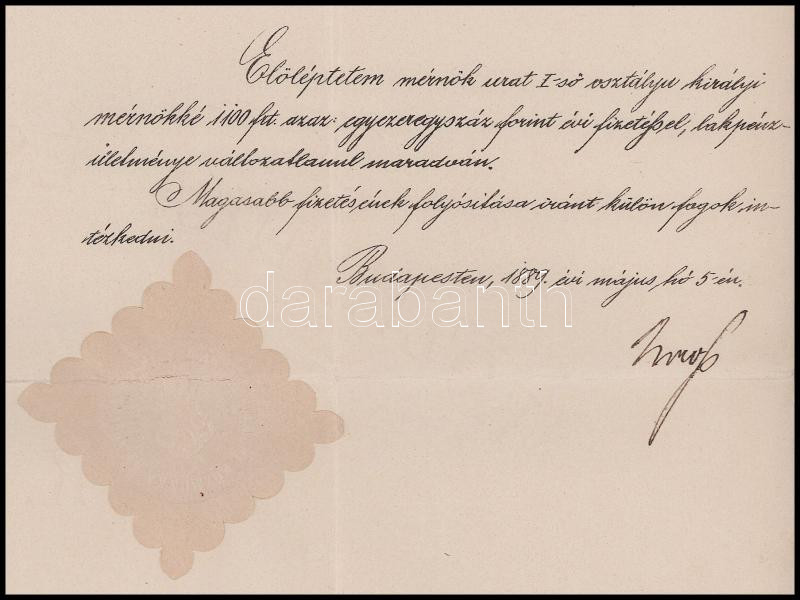 Előléptetem mérnök urat I-ső osztályu királyi
mérnökké 1100 frt. azaz: egyezeregyszáz forint évi fizetéssel, lakpénz-
illetménye változatlanul maradván.
Magasabb fizetésének folyósitása iránt külön fogok in-
tézkedni.
Budapesten, 1889. évi május hó 5-én.
darabanth